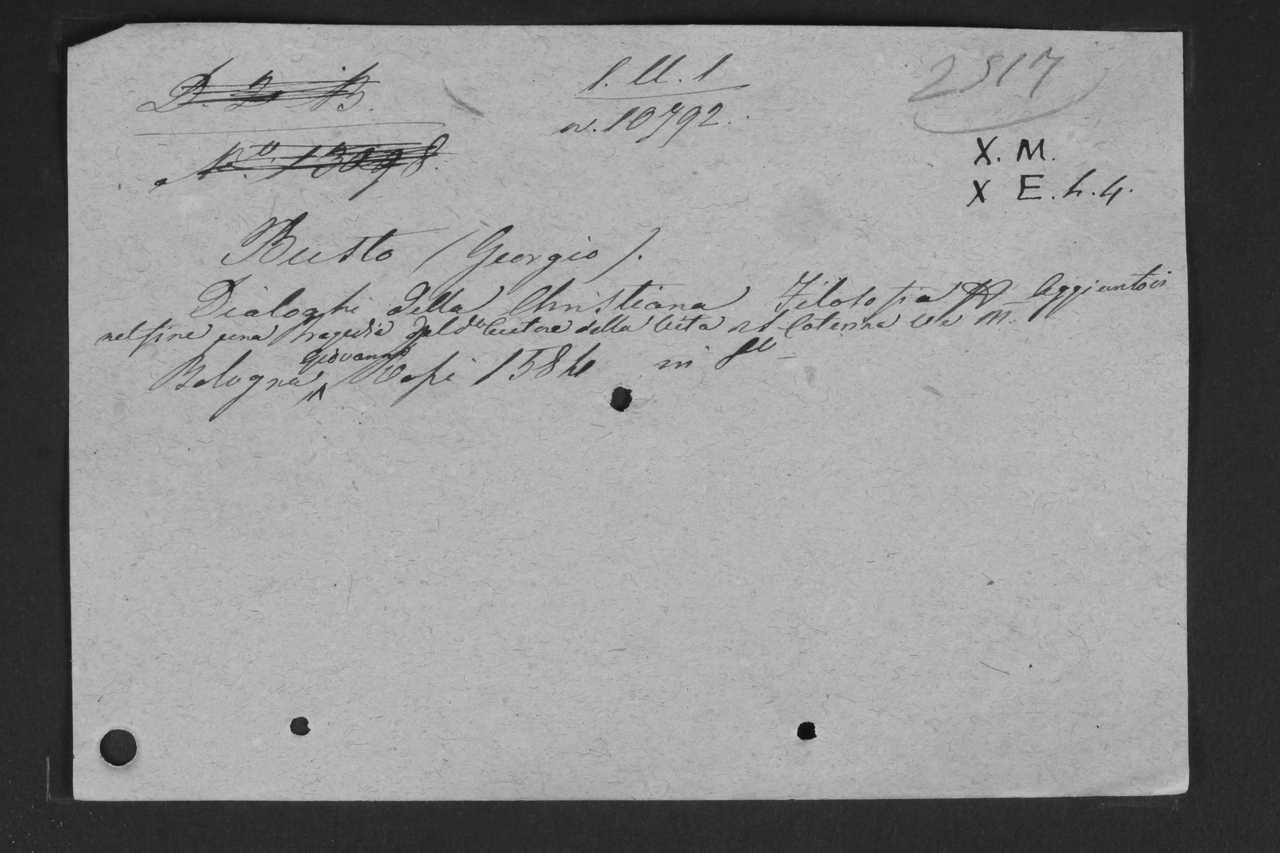 D. 2. B.
1. M. 1
2517
n. 10792.
N.º 13098.
X. M.
X E. h. 4.
Busto (Georgio).
Dialoghi della Christiana Filosofia Aggiuntovi
nel fine una Tragedia del do Autore della Vita di Caterina V. e M.
Bologna Giovanni Rossi 1584 in 8º